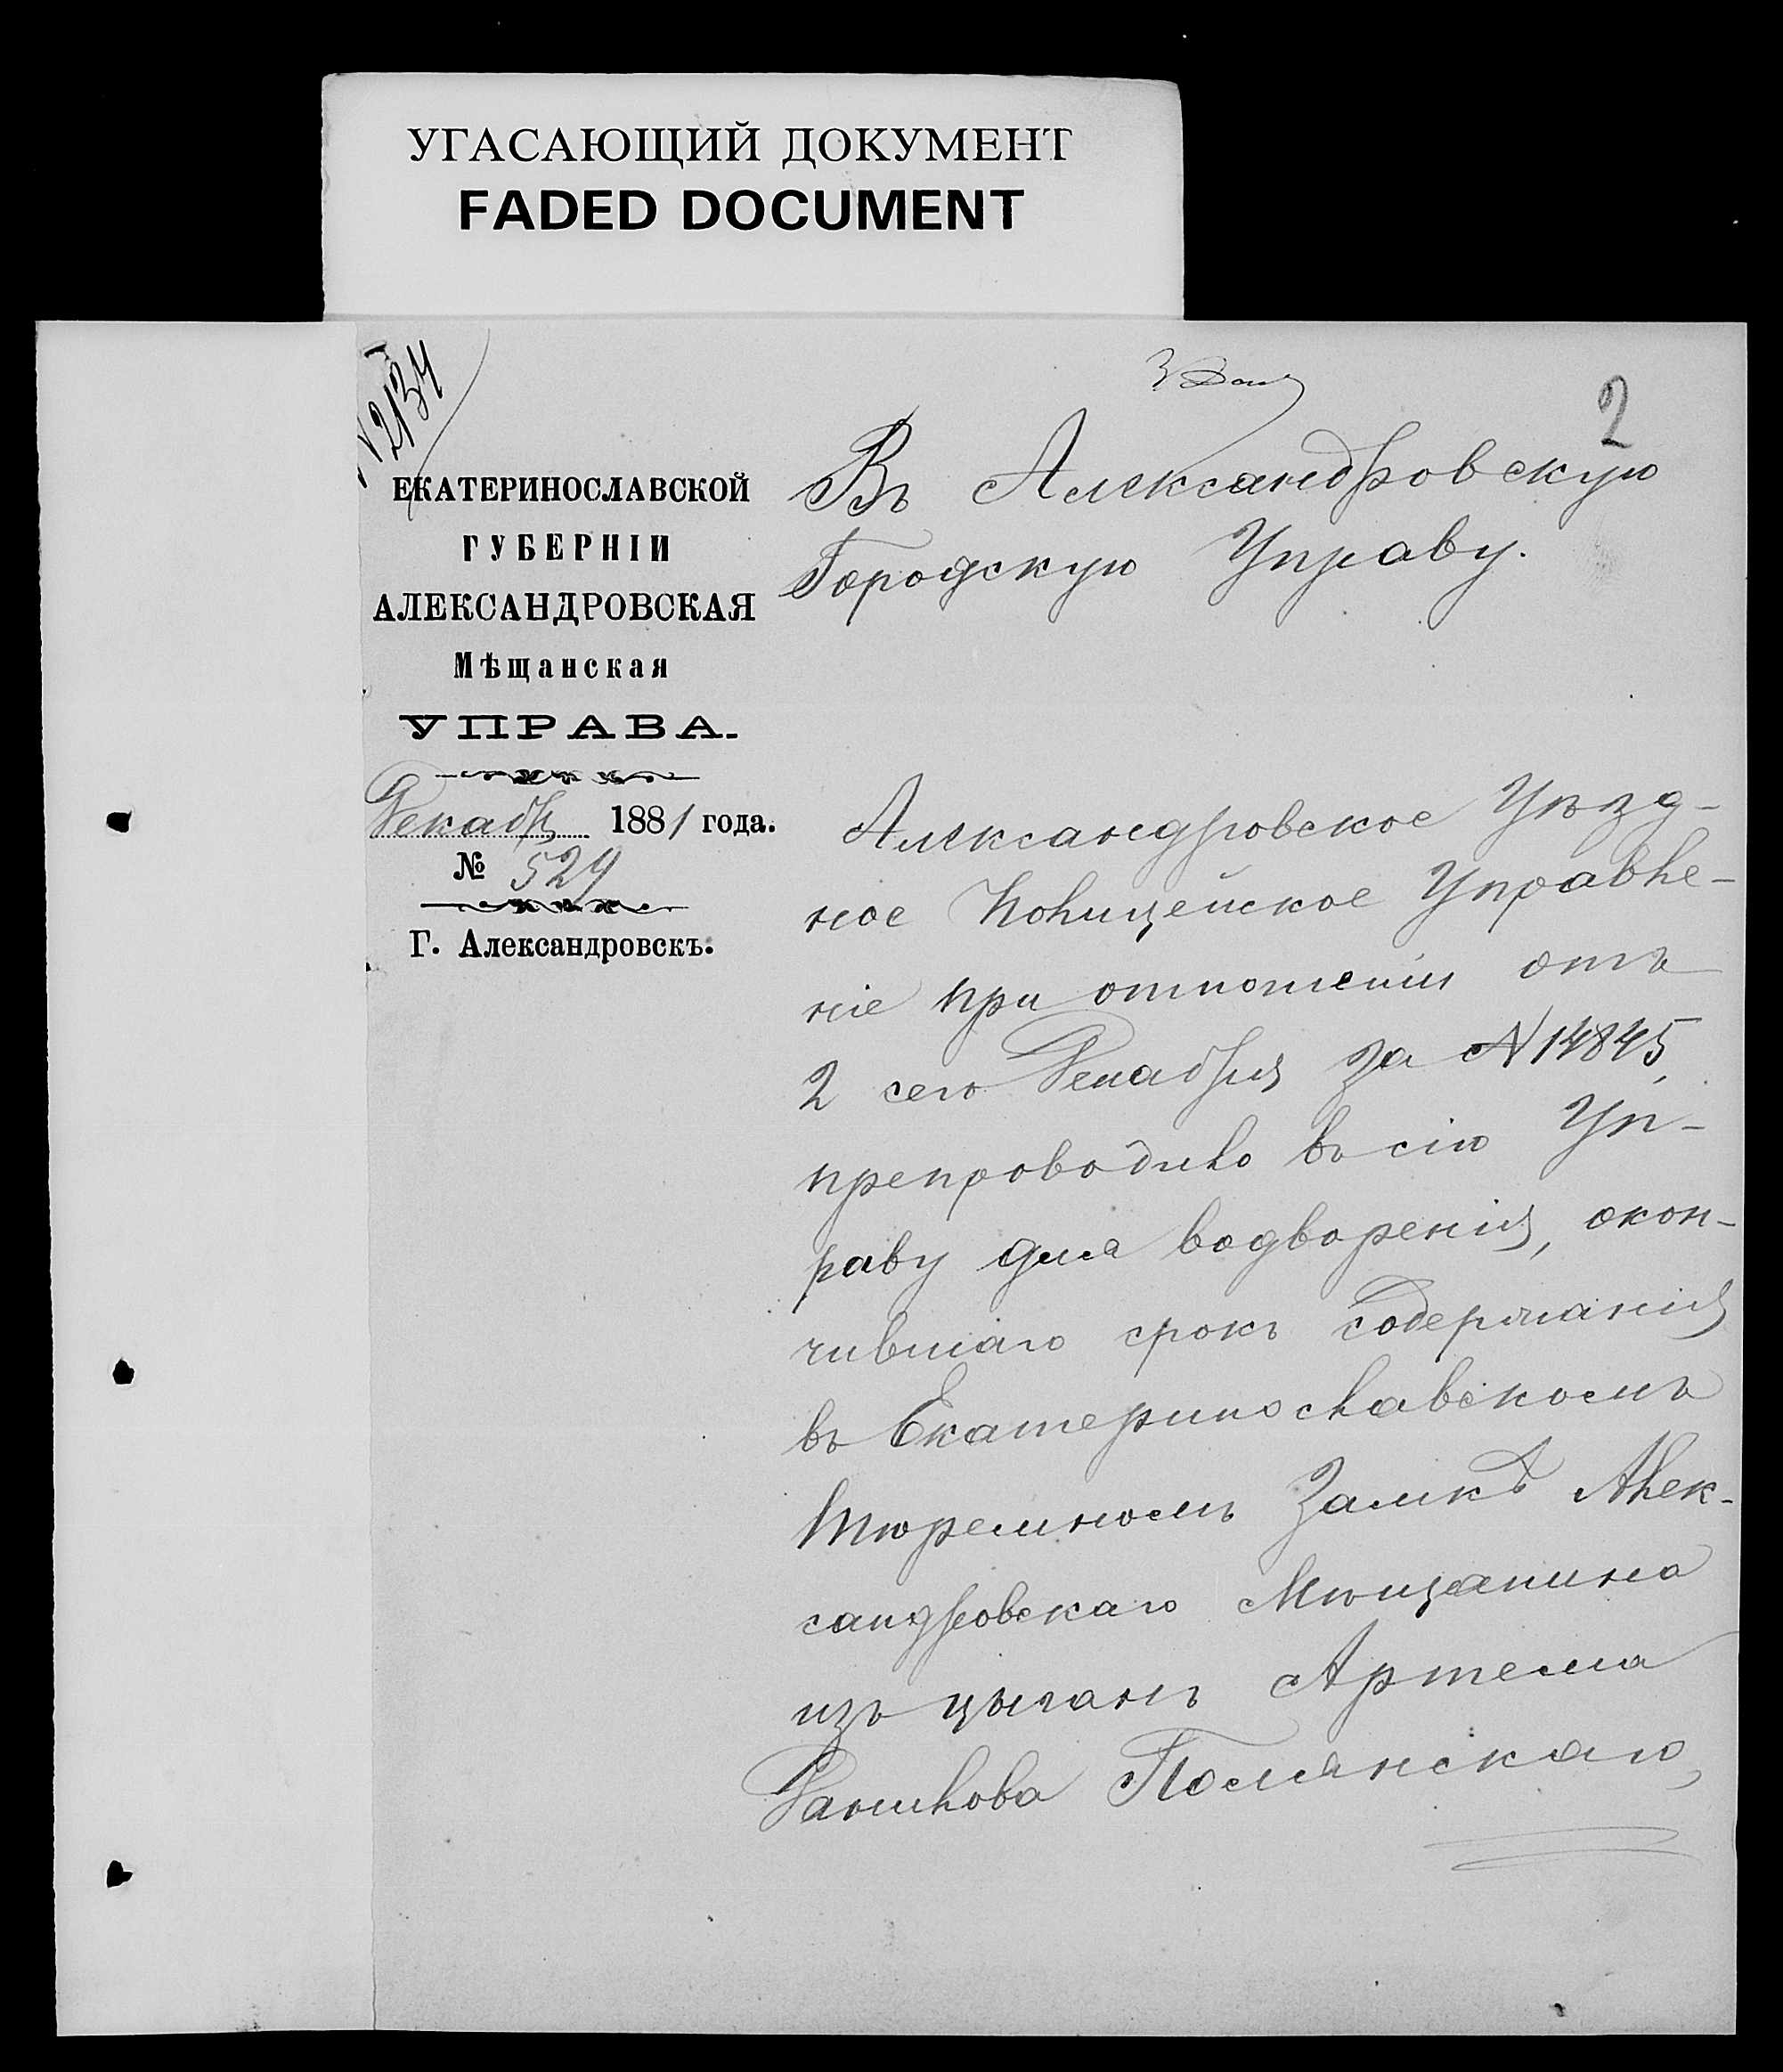 УГАСАЮЩИЙ ДОКУМЕНТ
FADED DOCUMENT
N 2134
2
ЕКАТЕРИНОСЛАВСКОЙ
ГУБЕРНІИ
АЛЕКСАНДРОВСКАЯ
Мѣщанская
УПРАВА.
Декабр 1881 года.
№ 529
Г. Александровскъ.
Въ Александровскую
Городскую Управу.
Александровское Уѣзд-
ное Полицейское Управле-
ніе при отношеніи отъ
2 сего Декабря за N 14845,
препроводило въ сію Уп-
раву для водворенія, окон-
чившаго срокъ содержанія
въ Екатеринославскомъ
тюремномъ Замкѣ Алек-
сандровскаго Мѣщанина
изъ цыганъ Артема
Данилова